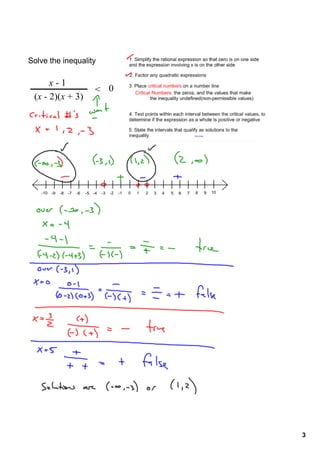 Solve the inequality
1. Simplify the rational expression so that zero is on one side
and the expression involving x is on the other side
2. Factor any quadratic expressions
x - 1
(x - 2)(x + 3) < 0
3. Place critical numbers on a number line
Critical Numbers: the zeros, and the values that make
the inequality undefined(non-permissible values)
want
-
Critical #'s
x = 1, 2, -3
4. Test points within each interval between the critical values, to
determine if the expression as a whole is positive or negative
5. State the intervals that qualify as solutions to the
inequality
(-∞, -3) (-3, 1) (1, 2) (2, ∞)
- + - +
-10 -9 -8 -7 -6 -5 -4 -3 -2 -1 0 1 2 3 4 5 6 7 8 9 10
over (-∞, -3)
x = -4
-4-1
(-4-2)(-4+3) = - / (-)(-) = - / + = - true
over (-3, 1)
x = 0 0-1 / (0-2)(0+3) = - / (-)(+) = - / - = + false
x = 3/2 (+) / (-)(+) = - true
x = 5 + / + + = + false
Solutions are (-∞, -3) or (1, 2)
3